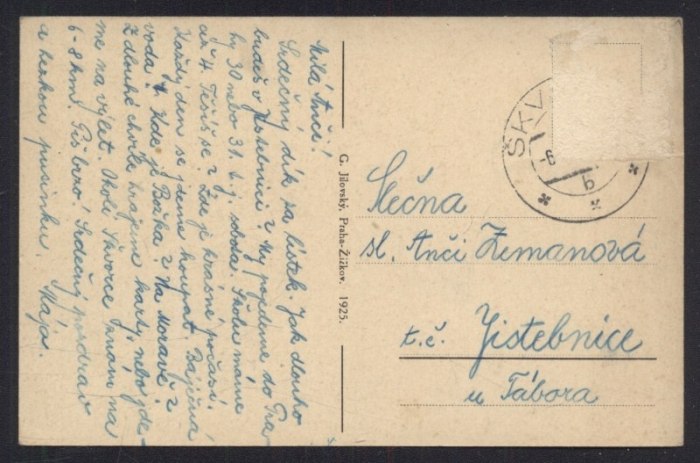 Milá Anči!
Srdečný dík za lístek. Jak dlouho
budeš v Jistebnici? My pojedeme do Pra
hy 30 nebo 31. t. j. sobota. Školu máme
až 4. Těšíš se? Zde je krásné počasí.
Každý den se jdeme koupat. Báječná
voda! Kde je Boška? Na Moravě?
Z dlouhé chvíle hrajeme karty, nebo jde-
me na výlet. Okolí Škvorce znám na
6-8 km. Piš brzo! Srdečný pozdrav
a hezkou pusinku. Mája.
G. Jilovský, Praha-Žižkov. 1925.
ŠKV
-6
b
Slečna
sl. Anči Zemanová
t. č. Jistebnice
u Tábora